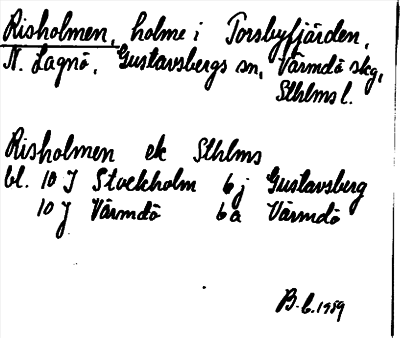 Risholmen, holme i Torsbyfjärden,
N. Lagnö, Gustavsbergs sn, Värmdö skg,
Sthlms l.
Risholmen ek Sthlms
bl. 10 I Stockholm 6 j Gustavsberg
10 J Värmdö 6 a Värmdö
B. C. 1989